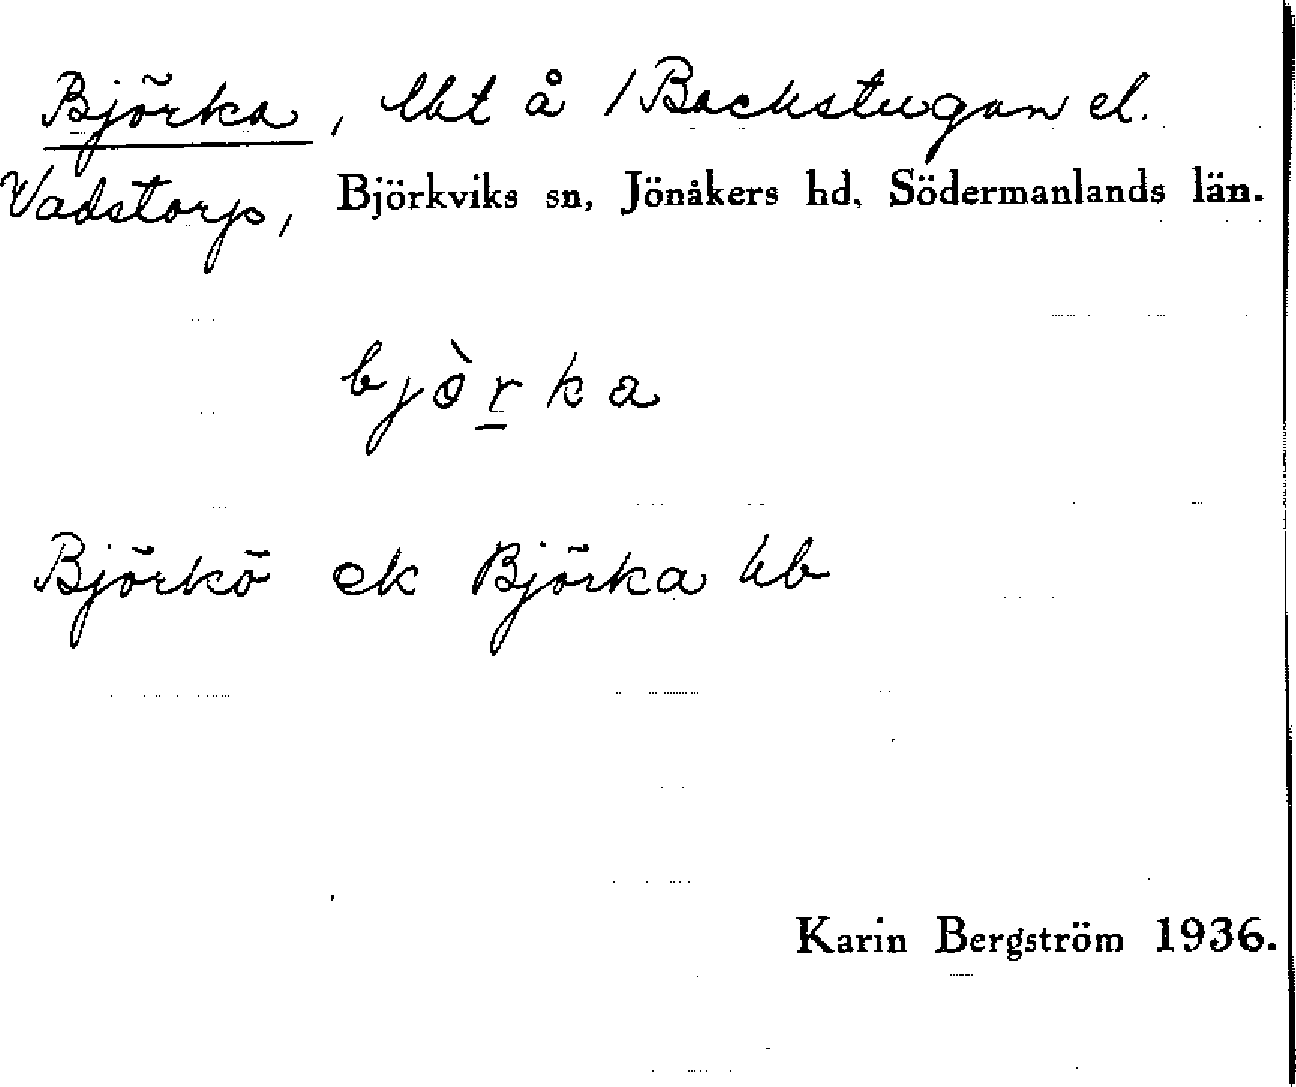 Björka, lht å /Backstugan el.
Vadstorp, Björkviks sn, Jönåkers hd, Södermanlands län.
bjòrka
Björkö ek Björka hb
Karin Bergström 1936.